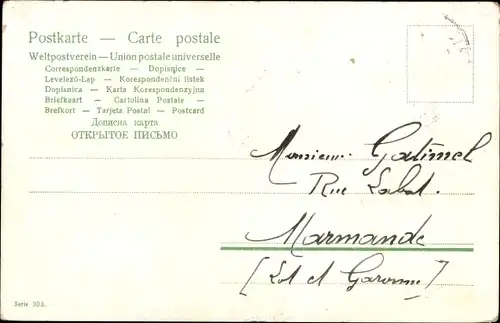 Postkarte — Carte postale
Weltpostverein — Union postale universelle
Correspondenzkarte — Dopisnice —
Levelező-Lap — Korespondenční listek
Dopisnica — Karta Korespondenzyjna
Briefkaart — Cartolina Postale —
Brefkort — Tarjeta Postal — Postcard
Дописна карта
ОТКРЫТОЕ ПИСЬМО
Monsieur Gatimel
Rue Labat.
Marmande
(Lot et Garonne)
Serie 304.